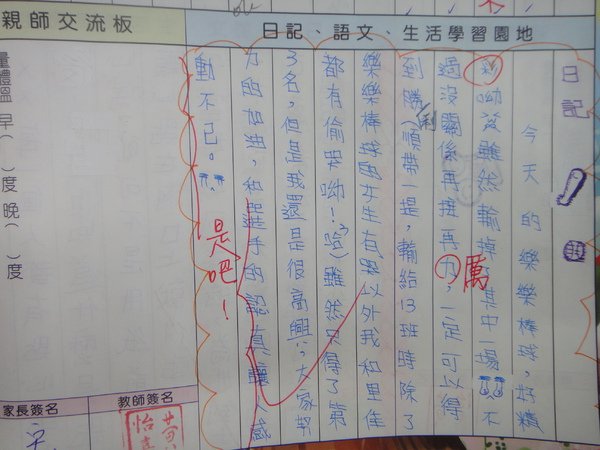 親師交流板
日記、語文、生活學習園地
日記
今天的樂樂棒球，好精
彩呦！雖然輸掉了其中一場，不
過沒關係再接再力，一定可以得
厲
到勝利（順帶一提，輸給13班時除了
樂樂棒球的女生有哭以外我和里佳
都有偷哭呦！哈）雖然只得了第
3名，但是我還是很高興，大家努
力的加油，和選手的認真讓人感
動不已。
是吧！
量體溫 早（ ）度 晚（ ）度
家長簽名
教師簽名